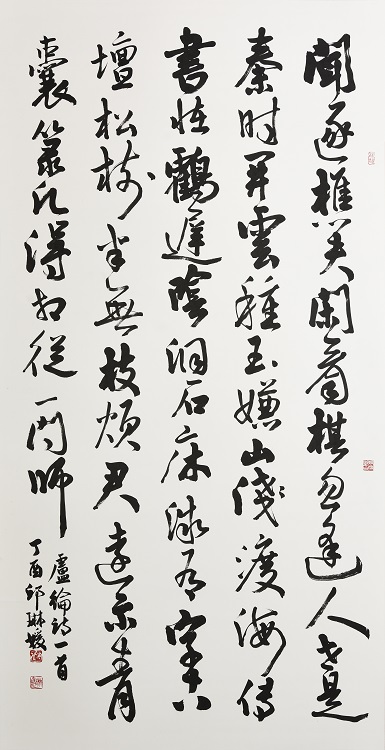 聞逐樵夫閑看棋忽逢人世是
秦時開雲種玉嫌山淺渡海傳
書怪鶴遲陰洞石床微有字古
壇松樹半無枝煩君遠示青
囊籙願得相從一問師
盧綸詩一首
丁酉邱琳媛